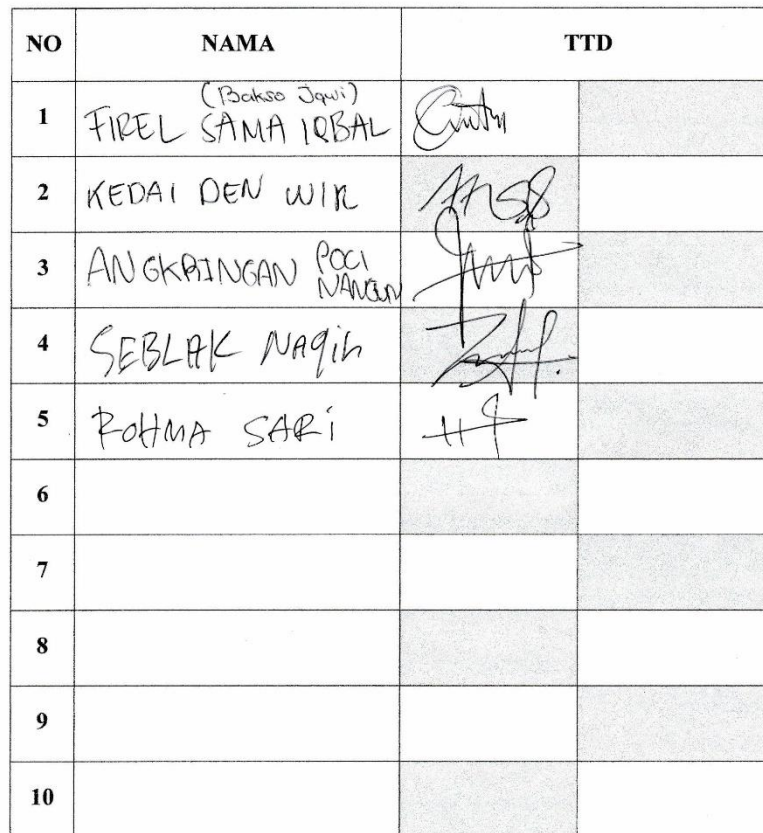 NO NAMA TTD
(Bakso Jawi)
1 FIREL SAMA IQBAL
2 KEDAI DEN WIR
3 ANGKRINGAN POCI
NANGUN
4 SEBLAK NAqih
5 ROHMA SARi
6
7
8
9
10